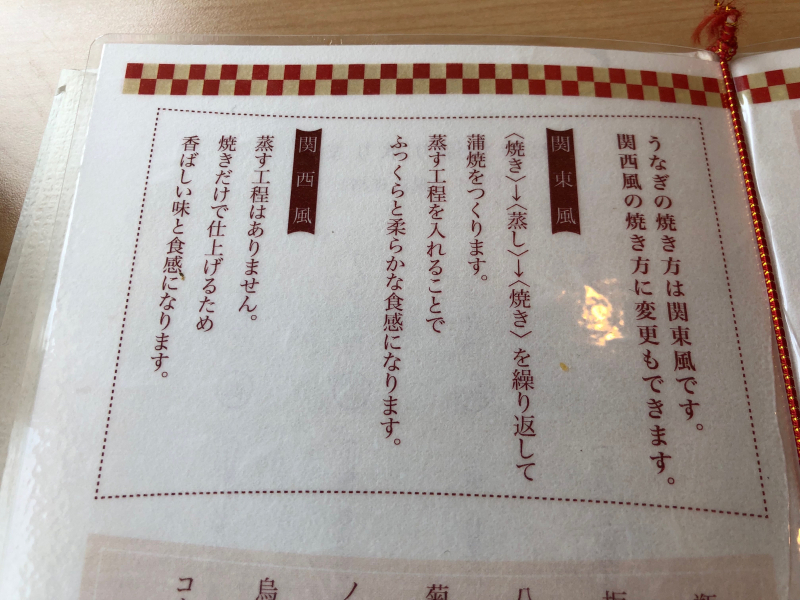 うなぎの焼き方は関東風です。
関西風の焼き方に変更もできます。
関東風
〈焼き〉→〈蒸し〉→〈焼き〉を繰り返して
蒲焼をつくります。
蒸す工程を入れることで
ふっくらと柔らかな食感になります。
関西風
蒸す工程はありません。
焼きだけで仕上げるため
香ばしい味と食感になります。
八
菊
ノ
鳥
コ